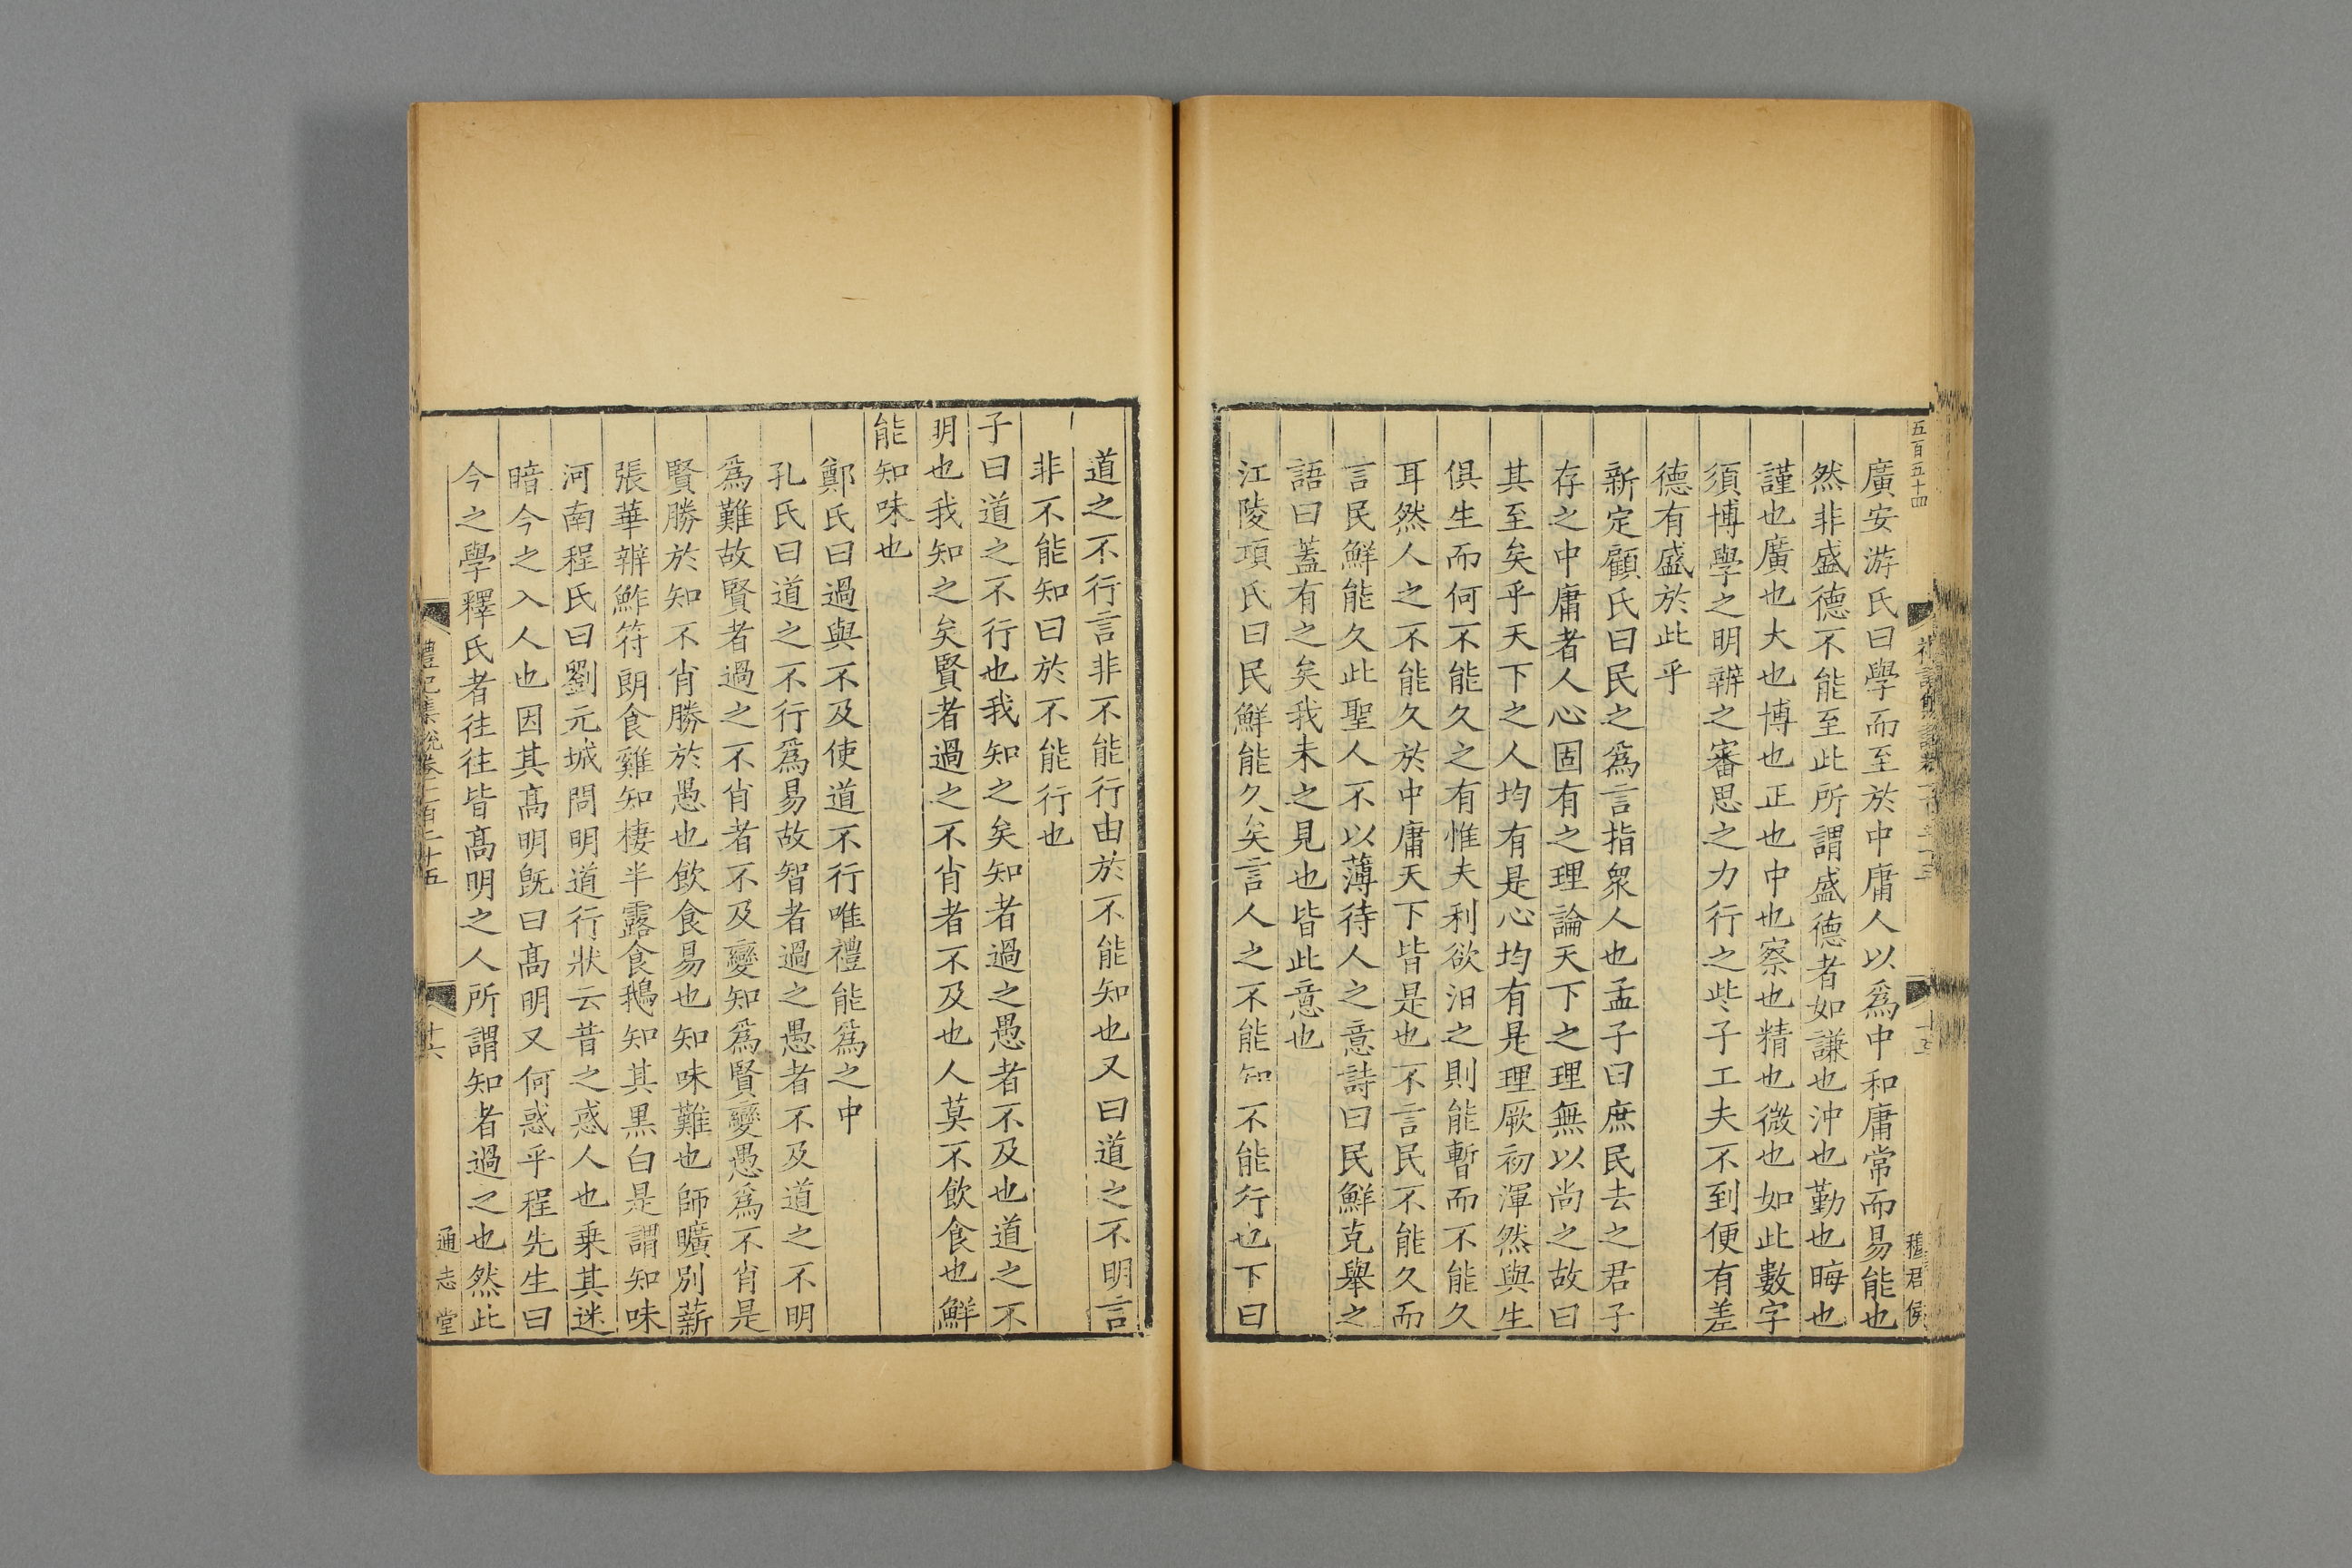 五百五十四
穆君侯
廣安游氏曰學而至於中庸人以爲中和庸常而易能也
然非盛德不能至此所謂盛德者如謙也沖也勤也晦也
謹也廣也大也博也正也中也察也精也微也如此數字
須博學之明辨之審思之力行之些子工夫不到便有差
德有盛於此乎
新定顧氏曰民之爲言指衆人也孟子曰庶民去之君子
存之中庸者人心固有之理論天下之理無以尚之故曰
其至矣乎天下之人均有是心均有是理厥初渾然與生
俱生而何不能久之有惟夫利欲汨之則能暫而不能久
耳然人之不能久於中庸天下皆是也不言民不能久而
言民鮮能久此聖人不以薄待人之意詩曰民鮮克舉之
語曰蓋有之矣我未之見也皆此意也
江陵項氏曰民鮮能久矣言人之不能知不能行也下曰
道之不行言非不能行由於不能知也又曰道之不明言
非不能知曰於不能行也
子曰道之不行也我知之矣知者過之愚者不及也道之不
明也我知之矣賢者過之不肖者不及也人莫不飲食也鮮
能知味也
鄭氏曰過與不及使道不行唯禮能爲之中
孔氏曰道之不行爲易故智者過之愚者不及道之不明
爲難故賢者過之不肖者不及變知爲賢變愚爲不肖是
賢勝於知不肖勝於愚也飲食易也知味難也師曠別薪
張華辨鮓符朗食雞知棲半露食鵝知其黑白是謂知味
河南程氏曰劉元城問明道行狀云昔之惑人也乗其迷
暗今之入人也因其高明旣曰高明又何惑乎程先生曰
今之學釋氏者往往皆高明之人所謂知者過之也然此
禮記集說卷一百二十五
十六
通志堂